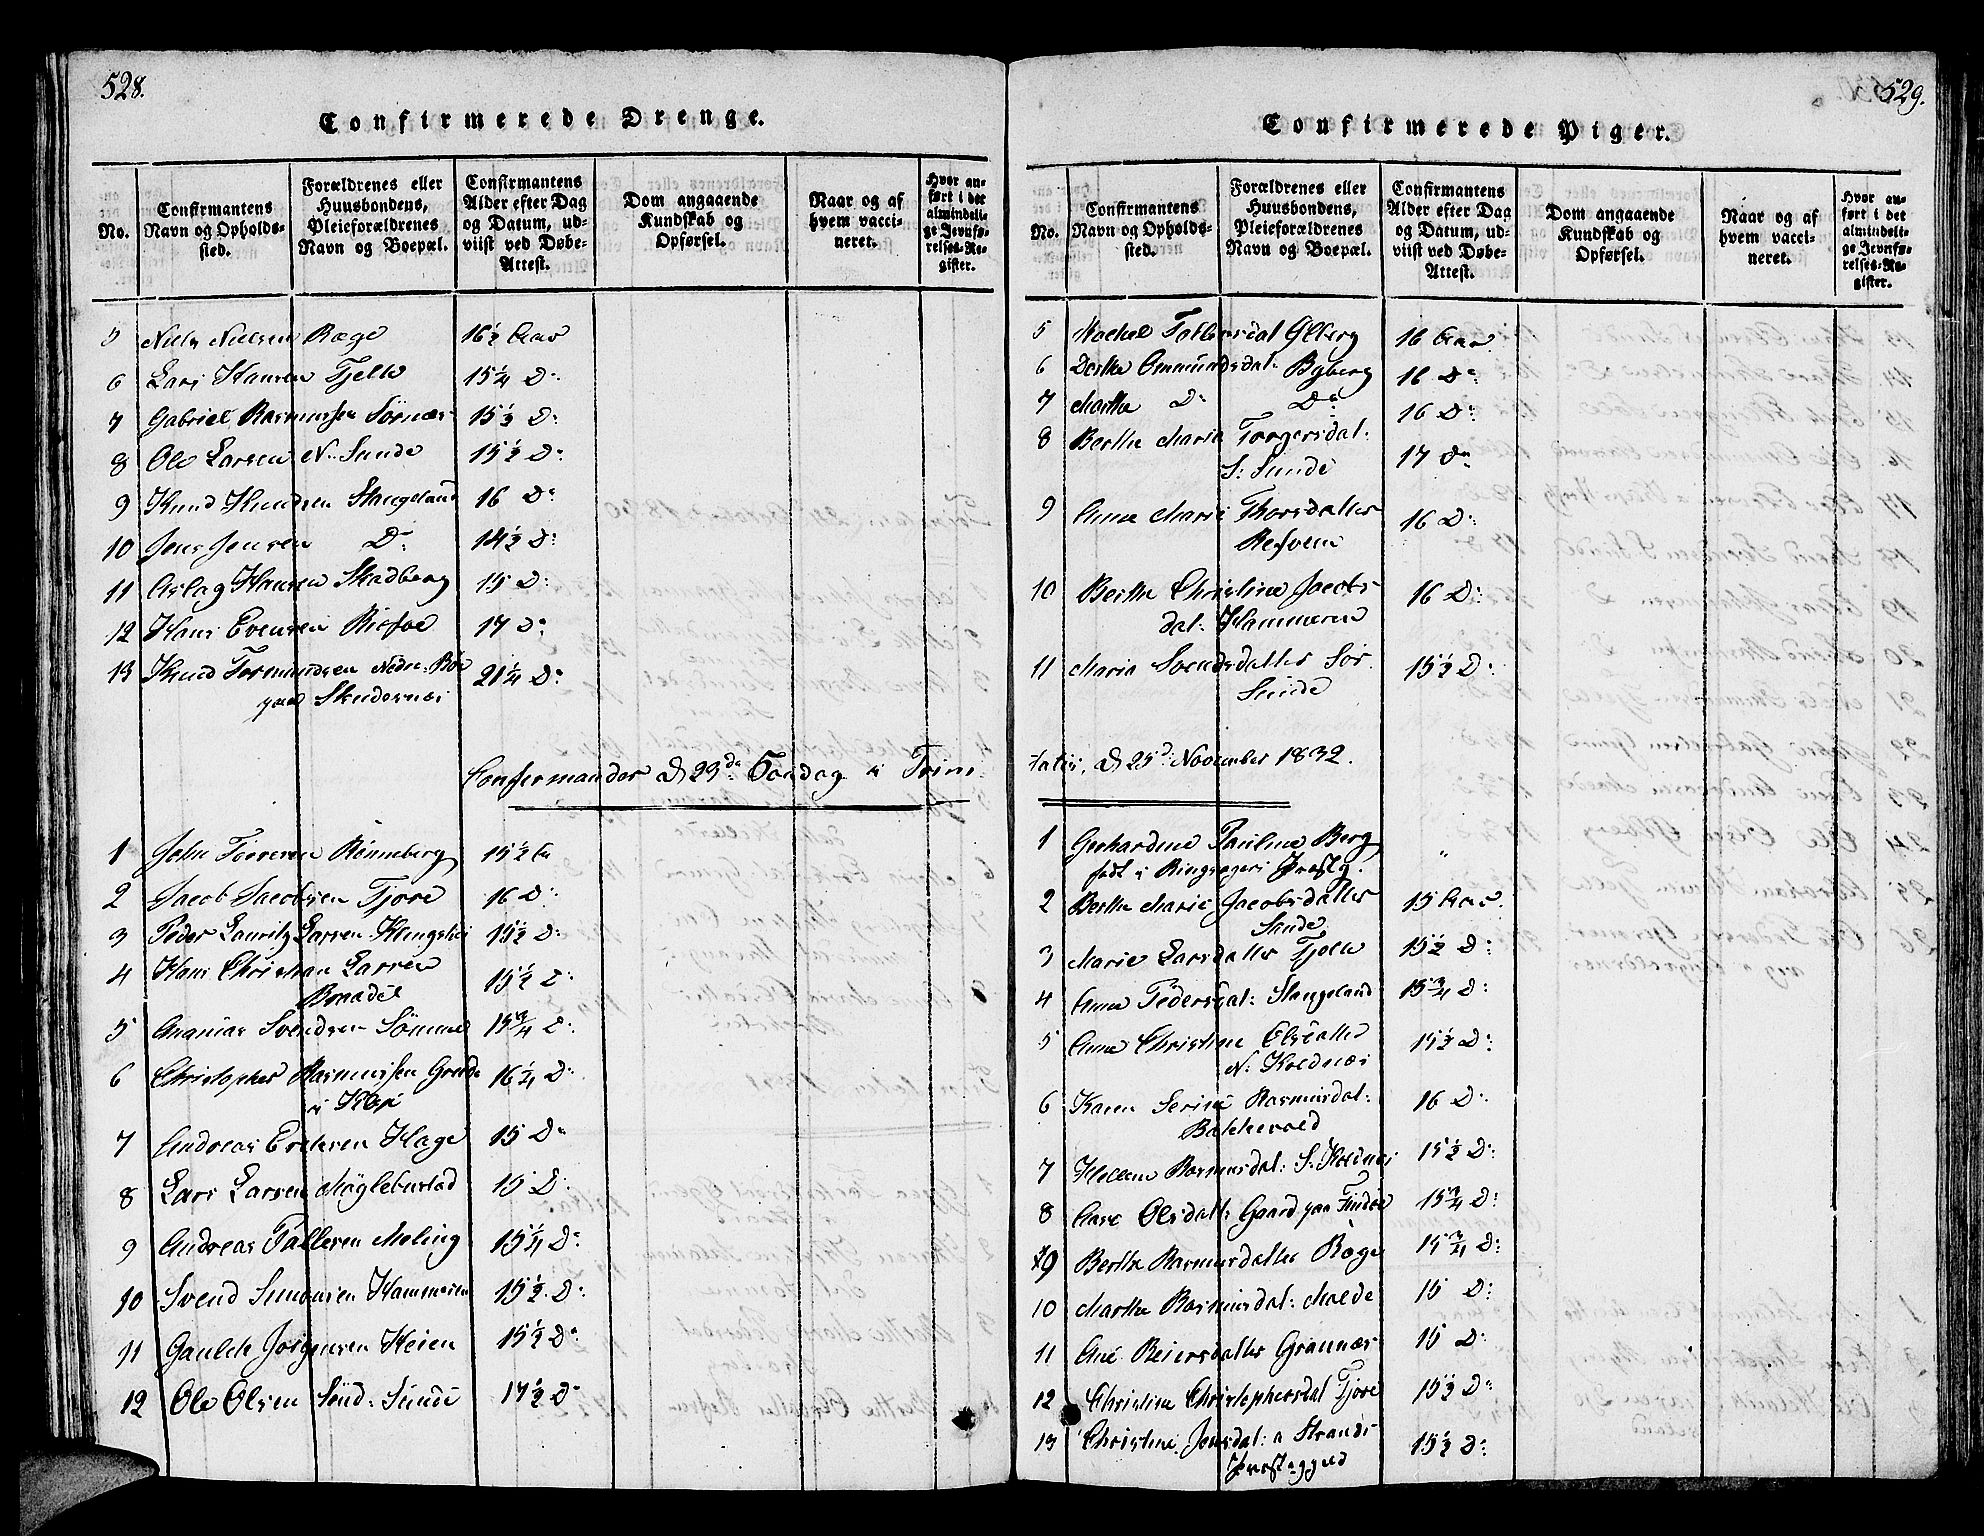 528.
Confirmerede Drenge.
No.
Confirmantens Navn og Opholdssted.
Forældrenes eller Huusbondens, Pleieforældrenes Navn og Boepæl.
Confirmantens Alder efter Dag og Datum, udviist ved Døbe-Attest.
Dom angaaende Kundskab og Opførsel.
Naar og af hvem vaccineret.
Hvor anført i det almindelige Jevnførelses-Register.
5 Niels Nielsen Ræge 16½ Aar
6 Lars Hansen Tjelle 15¼ D:
7 Gabriel Rasmussen Sörnæs 15½ D:
8 Ole Larsen N. Sunde 15½ D:
9 Knud Knudsen Stangeland 16 D:
10 Jens Jensen D: 14½ D:
11 Aslag Hansen Skadberg 15 D:
12 Hans Evensen Risfoe 17 D:
13 Knud Tormundsen Nedr. Böe 21¼ D:
paa Skudesnæs
Confirmander d 23de Söndag e Trini
1 John Toreson Rönneberg 15½ Aar
2 Jacob Jacobsen Tjore 16 D:
3 Peder Lauritz Larsen Klingshei 15½ D:
4 Hans Christian Larsen 15½ D:
5 Ananias Svendsen Sömme 15¾ D:
6 Christopher Rasmussen Grude 16¼ D:
i Klep
7 Andreas Ericksen Hage 15 D:
8 Lars Larsen Mögleburstad 15 D:
9 Andreas Tallesen Meling 15¼ D:
10 Svend Simonsen Hammeren 15½ D:
11 Gaulde Jörgensen Heien 15½ D:
12 Ole Olsen Sönd: Sunde 17½ D:
529.
Confirmerede Piger.
No.
Confirmantens Navn og Opholdssted.
Forældrenes eller Huusbondens, Pleieforældrenes Navn og Boepæl.
Confirmantens Alder efter Dag og Datum, udviist ved Døbe-Attest.
Dom angaaende Kundskab og Opførsel.
Naar og af hvem vaccineret.
Hvor anført i det almindelige Jevnførelses-Register.
5 Rachel Tollersdal Ölberg 16 Aar
6 Dorthe Ommundsdal: Byberg 16 D:
7 Marthe D: D: 16 D:
8 Berthe Maria Torgersdal: 17 D:
S: Sunde
9 Anne Marie Thorsdatter 16 D:
Refvem
10 Berthe Christine Jacobs 16 D:
dal: Hammeren
11 Maria Svendsdatter Sör 15½ D:
Sunde
tatis, d 25d November 1832.
1 Gerhardine Pauline Berg "
födt i Ringsager Præstg.
2 Berthe Marie Jacobsdatter 15 Aar
Sunde
3 Marie Larsdatter Tjelle 15½ D:
4 Anne Pedersdal: Stangeland 15¾ D:
5 Anne Christine Olsdatter 15½ D:
N. Koldnæs
6 Karen Serine Rasmusdal: 16 D:
Bakkevold
7 Helene Rasmusdal: S. Koldnæs 15½ D:
8 Aase Olsdatt: Gaard paa Findöe 15¾ D:
9 Berthe Rasmusdatter Ræge 15¾ D:
10 Marthe Rasmusdal: Malde 15 D:
11 Ane Reiersdatter Grannæs 15 D:
12 Christine Christophersdal Tjore 15½ D:
13 Christine Jensdal: a Strands 15½ D:
Præstegield